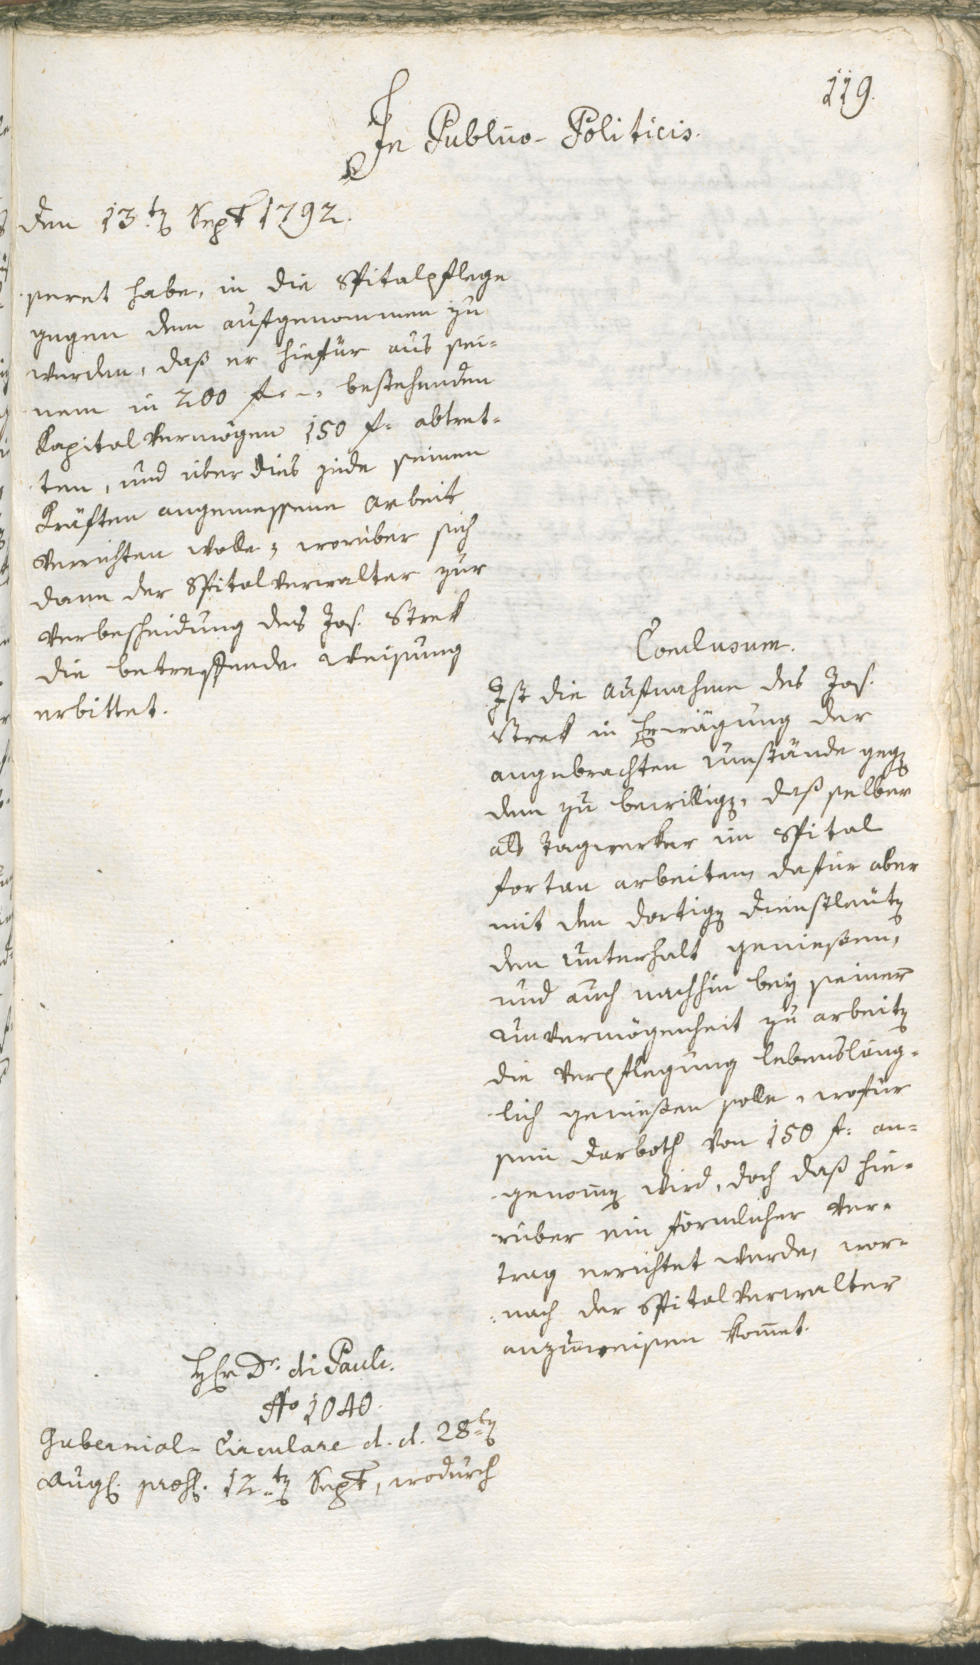 119.
In Publico-Politicis.
den 13.ten Sept 1792.
peret habe, in die Spitalpflege
gegen dem aufgenommen zu
werden, daß er hiefür aus sei=
nem in 200 f. bestehenden
Kapital Vermögen 150 f. abtret=
ten, und über dies jede seinen
Kräften angemessene Arbeit
verrichten wolle; worüber sich
dann der Spitalverwalter zur
Verbescheidung des Jos. Strek
die betreffende Weisung
erbittet.
Conclusum.
Ist die Aufnahme des Jos.
Strek in Erwägung der
angebrachten Umstände gegen
dem zu bewilligen, daß selber
als Tagwerker im Spital
fortan arbeiten, dafür aber
mit den dortigen Dienstleuten
den Unterhalt genießen,
und auch nachhin bey seiner
Unvermögenheit zu arbeiten
die Verpflegung lebensläng=
lich genießen solle, wofür
sein Darboth von 150 f. an=
genommen wird, doch daß hie=
rüber ein förmlicher Ver=
trag errichtet werde, wor=
nach der Spitalverwalter
anzuweisen kommet.
Hr Dr. di Pauli.
No 1040.
Gubernial-Circulare d. d. 28ten
Aug. præs. 12ten Sept, wodurch